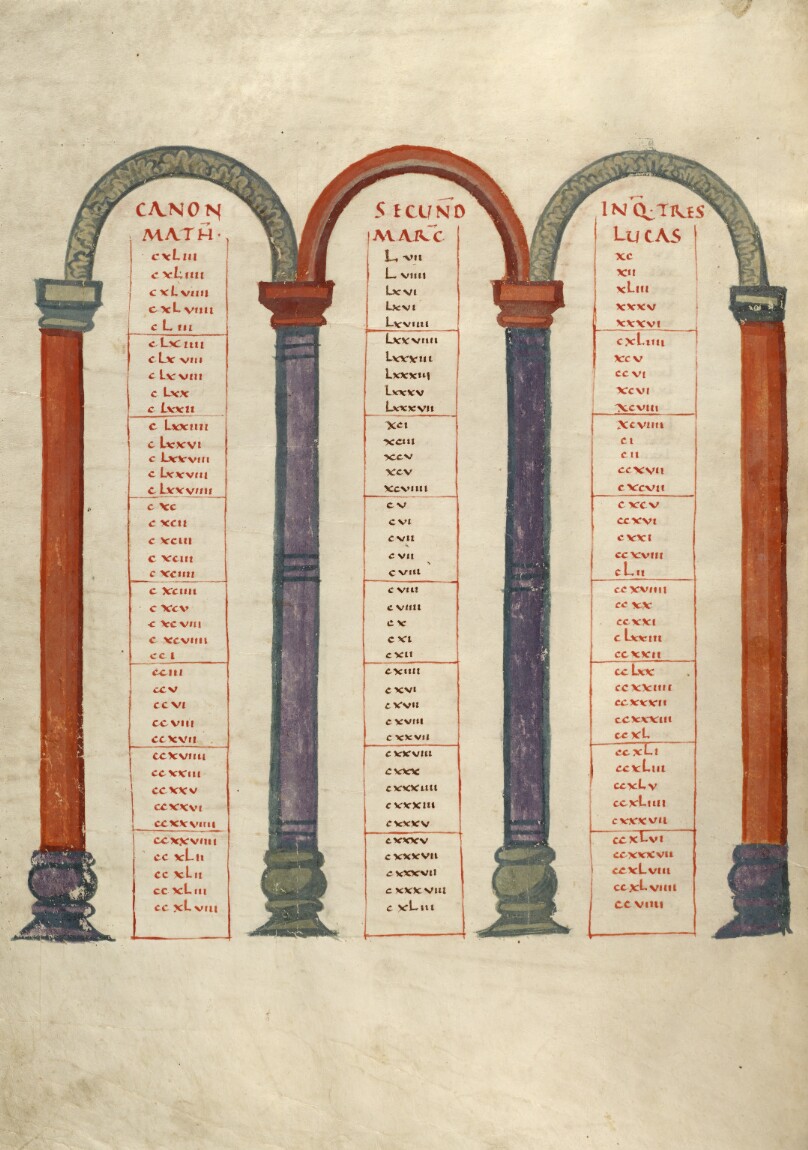 CANON SECUN̄D IN Q̄·TRES
MATH̄· MARC̄ LUCAS
cxLiii Lvii xc
cxLiiii Lviiii xii
cxLviiii Lxvi xLiii
cxLviiii Lxvi xxxv
cLiii Lxviiii xxxvi
cLxiiii Lxxviiii cxLiiii
cLxviii Lxxxiii xcv
cLxviii Lxxxiii ccvi
cLxx Lxxxv xcvi
cLxxii Lxxxvii xcviii
cLxxiiii xci xcviiii
cLxxvi xciii ci
cLxxviii xcv cii
cLxxviii xcv ccxvii
cLxxviiii xcviiii cxcvii
cxc cv cxcv
cxcii cvi ccxvi
cxciii cvii cxxi
cxciii cvii ccxviii
cxciiii cviii cLii
cxciiii cviii ccxviiii
cxcv cviiii ccxx
cxcviii cx ccxxi
cxcviiii cxi cLxxiii
cci cxii ccxxii
cciii cxiiii ccLxx
ccv cxvi ccxxiiii
ccvi cxvii ccxxxii
ccviii cxviii ccxxxiii
ccxvii cxxvii ccxL
ccxviiii cxxviii ccxLi
ccxxiii cxxx ccxLiii
ccxxv cxxxiiii ccxLv
ccxxvi cxxxiii ccxLiiii
ccxxviiii cxxxv cxxxvii
ccxxviiii cxxxv ccxLvi
ccxLii cxxxvii ccxxxvii
ccxLii cxxxvii ccxLviii
ccxLiii cxxxviii ccxLviiii
ccxLviii cxLiii ccviiii